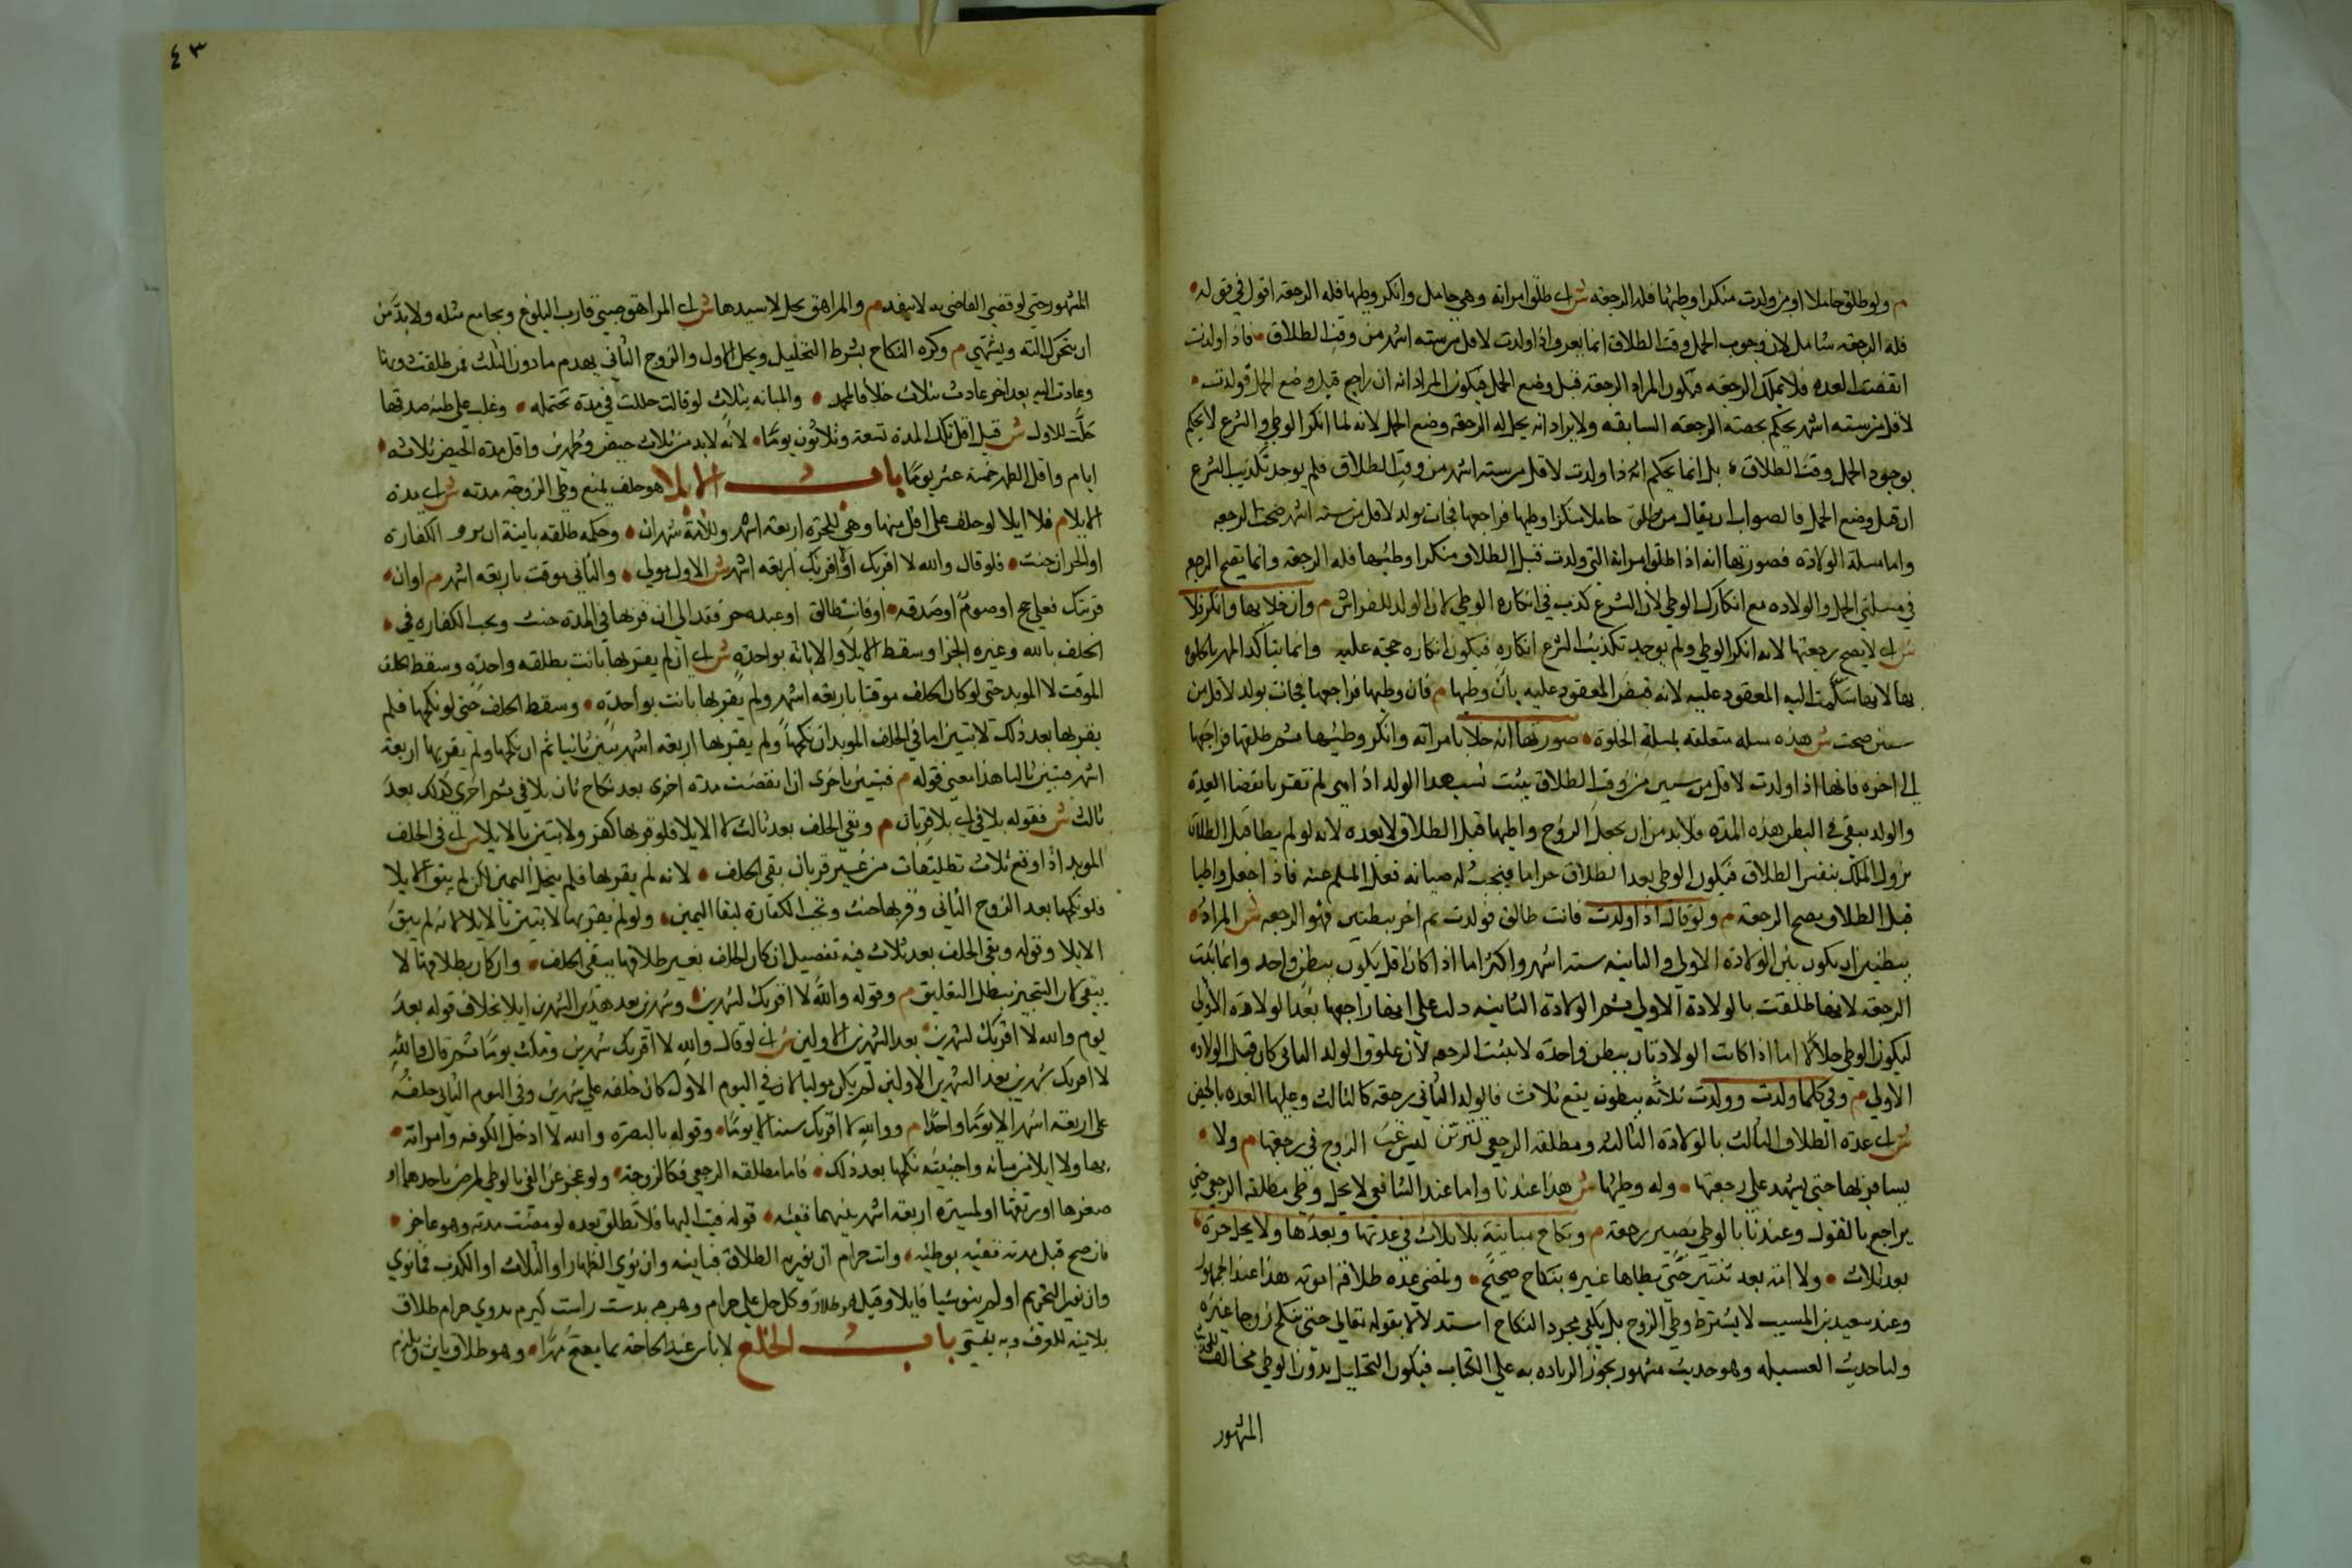 م ولو طلق حاملا او من ولدت منكرا وطيها فله الرجعة ش اى طلق امراته وهي حامل وانكر وطيها فله الرجعة اقول في قوله
فله الرجعة تساهل لان وجود الحمل وقت الطلاق انما يعرف اذا ولدت لاقل من ستة اشهر من وقت الطلاق فاذا ولدت
انقضت العدة فلا يملك الرجعة فيكون المراد الرجعة قبل وضع الحمل فيكون المراد انه ان راجع قبل وضع الحمل فولدت
لاقل من ستة اشهر يحكم بصحة الرجعة السابقة ولا يراد انه يحل له الرجعة وضع الحمل لانه لما انكر الوطي والشرع لا يحكم
بوجود الحمل وقت الطلاق بل انما يحكم اذا ولدت لاقل من ستة اشهر من وقت الطلاق فلم يوجد تكذيب الشرع
ان قبل وضع الحمل فالصواب ان يقال من طلق حاملا منكرا وطيها فراجعها فجات بولد لاقل من ستة اشهر صحت الرجعة
واما مسلة الولادة فصورتها انه اذا طلق امراته التي ولدت قبل الطلاق منكرا وطيها فله الرجعة وانما تصح الرجع
في مسلتي الحمل والولادة مع انكاره الوطي لان الشرع كذبه في انكاره الوطي لان الولد للفراش م وان خلا بها وانكر فلا
ش اى لا يصح رجعتها لانه انكر الوطي ولم يوجد تكذيب الشرع انكاره فيكون انكاره حجة عليه وانما يتاكد المهر بالخلوة
بها لانها سلمت اليه المعقود عليه لانه قبض المعقود عليه بان وطيها م فان وطيها فراجعها فجات بولد لاقل من
سنين صحت ش هذه مسلة متعلقة بمسلة الخلوة صورتها انه خلا بامراته وانكر وطيها ثم طلقها فراجعها
الى اخره فانها اذا ولدت لاقل من سنتين من وقت الطلاق يثبت نسب هذا الولد اذ هي لم تقر بانقضا العدة
والولد يبقى في البطن هذه المدة فلا بد من ان يجعل الزوج واطيها قبل الطلاق لا بعده لانه لو لم يطا قبل الطلاق
يزول الملك بنفس الطلاق فيكون الوطي بعد الطلاق حراما فيجب له صيانة فعل المسلم عنه فاذا جعل واطيا
قبل الطلاق يصح الرجعة م ولو قال اذا ولدت فانت طالق فولدت ثم اخر ببطنين فهو الرجعة ش المراد
ببطنين ان يكون بين الولادة الاولى والثانية ستة اشهر او اكثر اما اذا كان اقل يكون ببطن واحد وانما ثبتت
الرجعة لانها طلقت بالولادة الاولى ثم الولادة الثانية دلت على انه راجعها بعد الولادة الاولى
ليكون الوطي حلالا اما اذا كانت الولادتان ببطن واحدة لا يثبت الرجعة لان علوق الولد الثاني كان قبل الولادة
الاولى م وفي كلما ولدت وولدت ثلاثة ببطون يقع ثلاث فالولد الثاني رجعة كالثالث وعليها العدة بالحيض
ش اى عدة الطلاق الثالث بالولادة الثالثة ومطلقة الرجعي تتزين ليرغب الزوج في رجعتها م ولا
يسافر بها حتى يشهد على رجعتها وله وطيها ش هذا عندنا واما عند الشافعي لا يحل وطي مطلقة الرجعي حتى
يراجع بالقول وعندنا بالوطي يصير رجعة م ونكاح مباينة بلا ثلاث في عدتها وبعدها ولا يحل حرة
بعد ثلاث ولا امة بعد ثنتين حتى يطاها غيره بنكاح صحيح وتمضي عدة طلاقه او موته هذا عند الجمهور
وعند سعيد بن المسيب لا يشترط وطي الزوج بل يكفي مجرد النكاح استدلالا بقوله تعالى حتى تنكح زوجا غيره
ولنا حديث العسيلة وهو حديث مشهور يجوز الزيادة به على الكتاب فيكون التحليل بدون الوطي مخالف للحديث
المشهور
٤٣
المشهور حتى لو قضى القاضي به لا ينفد م والمراهق يحل لا سيدها ش اى المراهق صبي قارب البلوغ ويجامع مثله ولا بد من
ان يتحرك الته ويشتهي م وكره النكاح بشرط التحليل ويحل للاول والزوج الثاني يهدم ما دون الثلث فمن طلقت دونها
وعادت اليه بعد اخر عادت بثلاث خلافا لمحمد والمبانة بثلاث لو قالت حللت في مدة تحتمله وغلب على ظنه صدقها
حلت للاول ش قيل اقل تلك المدة تسعة وثلاثون يوما لانه لا بد من ثلاث حيض وطهرين واقل مدة الحيض ثلاثة
ايام واقل الطهر خمسة عشر يوما باب الايلا هو حلف يمنع وطي الزوجة مدته ش اى مدة
الايلا م فلا ايلا لو حلف على اقل منها وهي للحرة اربعة اشهر وللامة شهران وحكمه طلقة باينة ان بر و الكفارة
او الجزا ان حنث فلو قال والله لا اقربك او لا اقربك اربعة اشهر ش الاول موبد والثاني موقت باربعة اشهر م او ان
قربتك فعلي حج او صوم او صدقة او فانت طالق او عبده حر فقد الى ان قربها في المدة حنث ويجب الكفارة في
الحلف بالله وغيره الجزا وسقط الايلا والا بانت بواحدة ش اى ان لم يقربها بانت بطلقة واحدة وسقط الحلف
الموقت لا الموبد حتى لو كان الحلف موقتا باربعة اشهر ولم يقربها بانت بواحدة وسقط الحلف حتى لو نكحها فلم
يقربها بعد ذلك لا تبين اما في الحلف الموبد ان نكحها ولم يقربها اربعة اشهر تبين ثانيا ثم ان نكحها ولم يقربها اربعة
اشهر تبين ثالثا هذا معنى قوله م فتبين باخرى ان انقضت مدة اخرى بعد نكاح ثان بلا فى ثم اخرى كذلك بعد
ثالث ش فقوله بلا فى اى بلا قربان م وبقي الحلف بعد ثالث لا الايلا فلو قربها كفر ولا تبين بالايلا ش اى في الحلف
الموبد اذا وقع ثلاث تطليقات من غير قربان بقي الحلف لانه لم يقربها فلم ينحل اليمين لكن لم يبق الايلا
فلو نكحها بعد الزوج الثاني وقربها حنث وتجب الكفارة لبقا اليمين ولو لم يقربها لا تبين بالايلا لانه لم يبق
الايلا وقوله وبقي الحلف بعد ثلاث فيه تفصيل ان كان الحلف بغير طلاقها يبقى الحلف وان كان بطلاقها لا
يبقى لان التنجيز يبطل التعليق م وقوله والله لا اقربك شهرين وشهرين بعد هذين الشهرين ايلا بخلاف قوله بعد
يوم والله لا اقربك شهرين بعد الشهرين الاولين ش اى لو قال والله لا اقربك شهرين ومكث يوما ثم قال والله
لا اقربك شهرين بعد الشهرين الاولين لم يكن موليا لان في اليوم الاول كان حلفه على شهرين وفي اليوم الثاني حلفه
على اربعة اشهر الا يوما واحدا م ووالله لا اقربك سنة الا يوما وقوله بالبصرة والله لا ادخل الكوفة وامراته
بها ولا ايلا من مبانة واجنبية نكحها بعد ذلك فاما مطلقة الرجعي فكالزوجة ولو عجز عن الفى بالوطي لمرض باحدهما او
صغرها او رتقها او لمسيرة اربعة اشهر بينهما ففيئه قوله فيت اليها فلا تطلق بعده لو مضت مدته وهو عاجز
فان صح قبل مدته ففيئه بوطيه وانت حرام ان نوى به الطلاق فباينة وان نوى الظهار او الثلاث او الكذب فما نوى
وان نوى التحريم او لم ينو شيا فايلا وقيل هو طلاق وكل حل علي حرام وهرچه بدست راست كيرم بروي حرام طلاق
بلا نية للعرف وبه يفتى باب الخلع لا باس عند الحاجة بما يصح مهرا وهو طلاق باين ويلزم